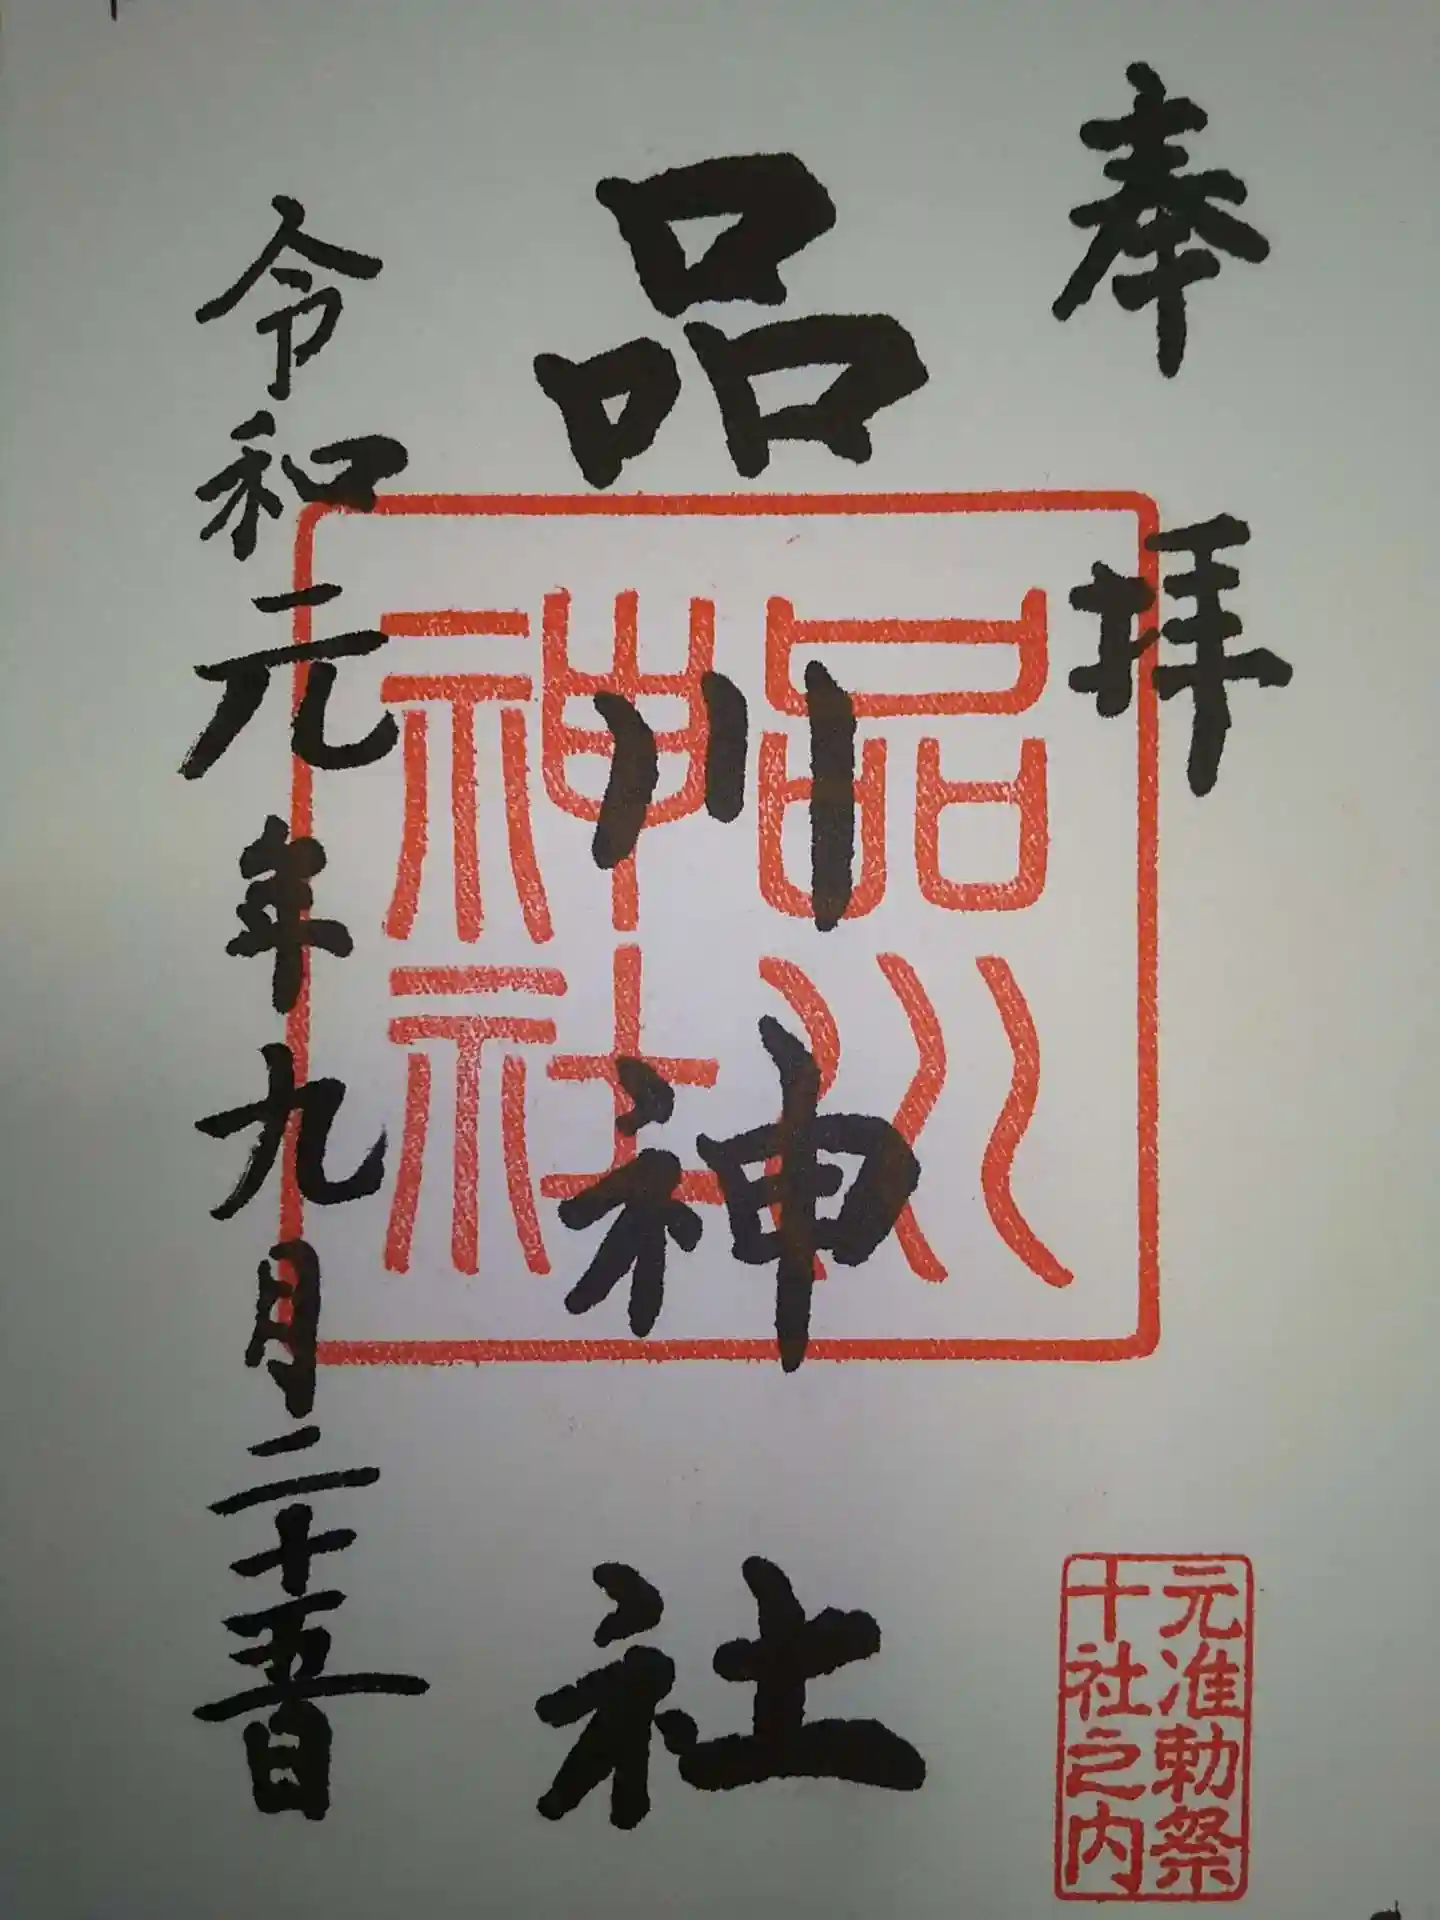 奉拝
品川神社
令和元年九月二十五日
品川
神社
元准勅祭
十社之内